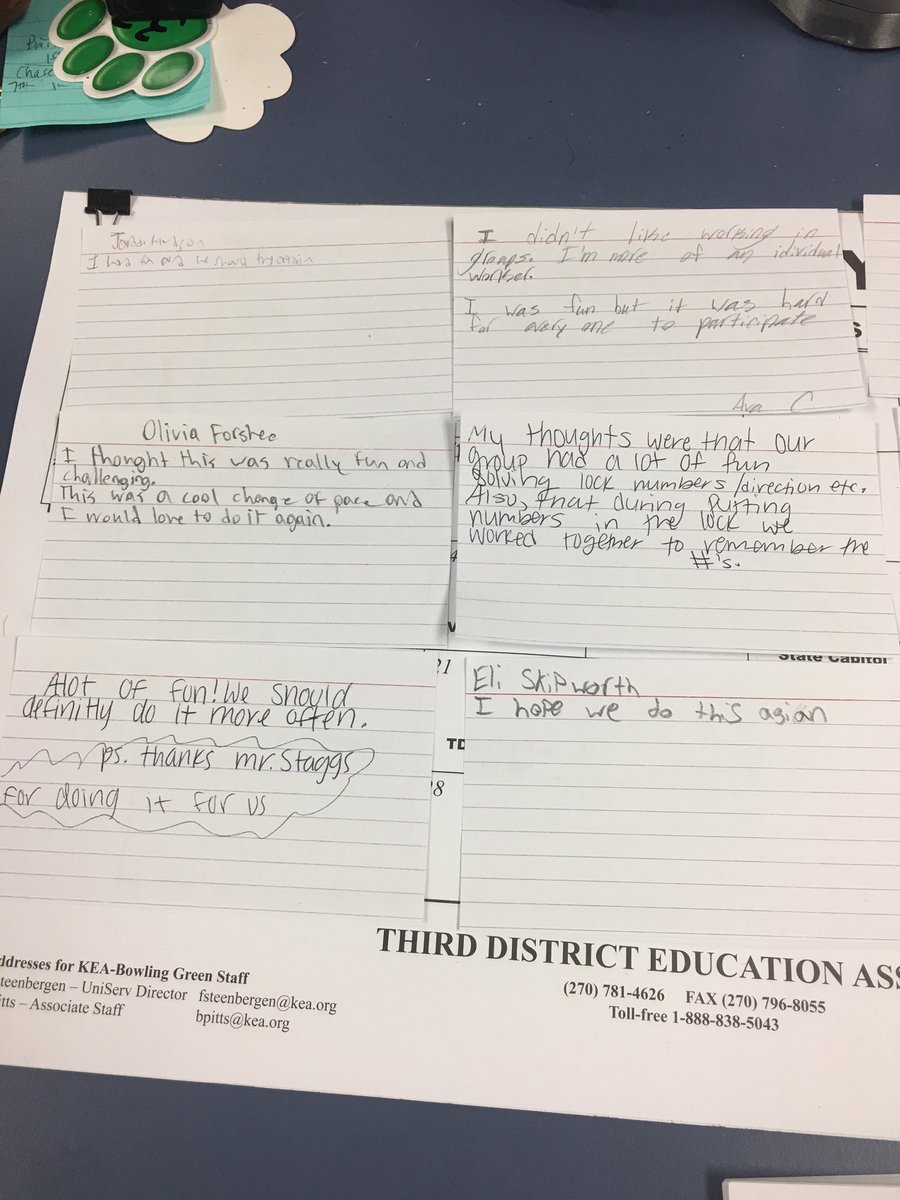 I
we should try again
I didn't like working in
groups. I'm more of an idividual
worker.
I was fun but it was hard
for every one to participate
Ava C
Olivia Forshee
I thought this was really fun and
challenging.
This was a cool change of pace and
I would love to do it again.
My thoughts were that our
group had a lot of fun
solving lock numbers/direction etc.
Also, that during putting
numbers in the lock we
worked together to remember the
#'s.
Alot of fun! We should
definitly do it more often.
ps. thanks mr. Staggs
for doing it for us
Eli Skipworth
I hope we do this agian
State Capitol
21
TD
8
THIRD DISTRICT EDUCATION ASS
(270) 781-4626 FAX (270) 796-8055
Toll-free 1-888-838-5043
ddresses for KEA-Bowling Green Staff
teenbergen – UniServ Director fsteenbergen@kea.org
itts – Associate Staff bpitts@kea.org